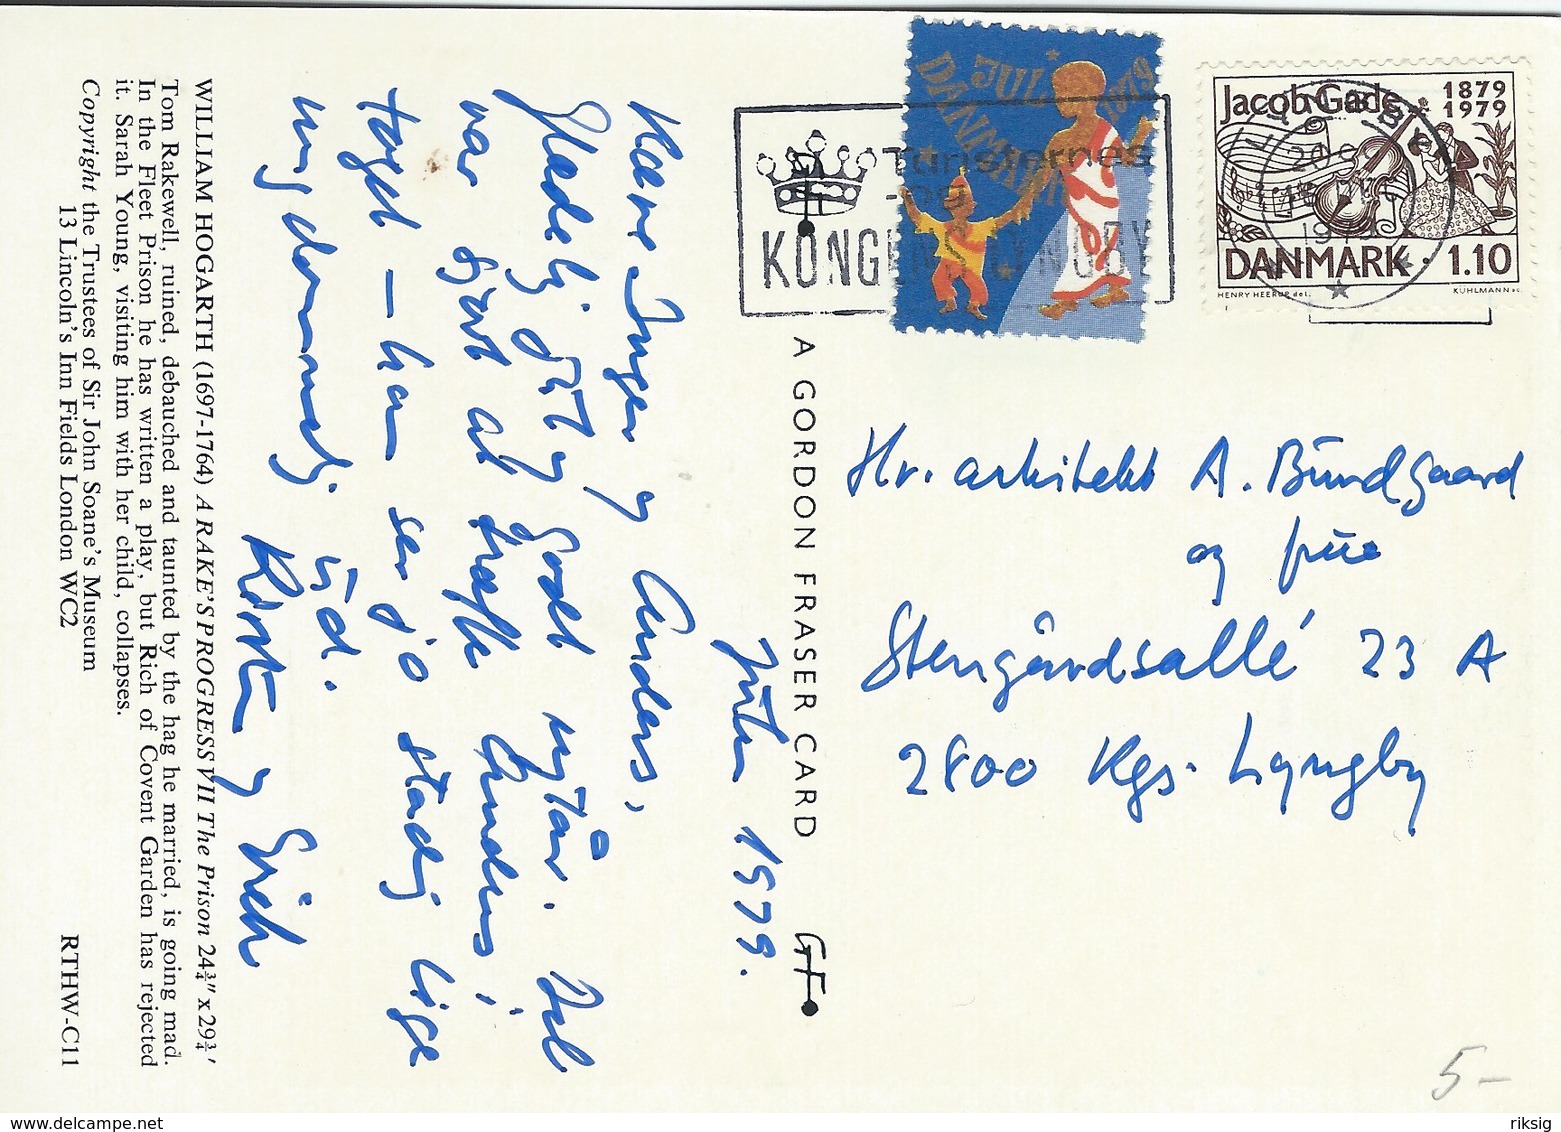 WILLIAM HOGARTH (1697-1764) A RAKE'S PROGRESS VII The Prison 24¾" x 29¾'
Tom Rakewell, ruined, debauched and taunted by the hag he married, is going mad.
In the Fleet Prison he has written a play, but Rich of Covent Garden has rejected
it. Sarah Young, visiting him with her child, collapses.
Copyright the Trustees of Sir John Soane's Museum
13 Lincoln's Inn Fields London WC2
RTHW-C11
Julen 1979.
Kære Inger og Anders,
Glædelig jul og godt nytår. Det
var sjovt at træffe Anders i
toget – han ser jo stadig lige
ungdommelig
ud.
Kirsten og Erik
A GORDON FRASER CARD
GF
JUL
DANMARK
1979
Turisternes
-og
KONGENS LYNGBY
Jacob Gade 1879
1979
DANMARK · 1.10
HENRY HEERUP del.
KÜHLMANN sc.
Hr. arkitekt A. Bundgaard
og frue
Stengårdsallé 23 A
2800 Kgs. Lyngby
5-
riksig